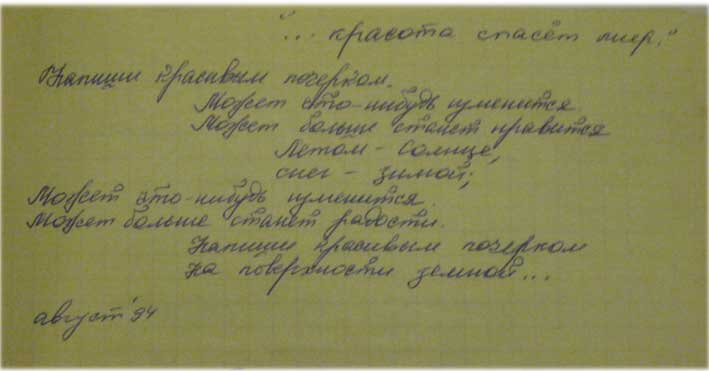 "... красота спасёт мир."
Напиши красивым почерком.
Может что-нибудь изменится.
Может больше станет нравится
Летом - солнце,
снег - зимой;
Может что-нибудь изменится.
Может больше станет радости.
Напиши красивым почерком
На поверхности земной...
август '94